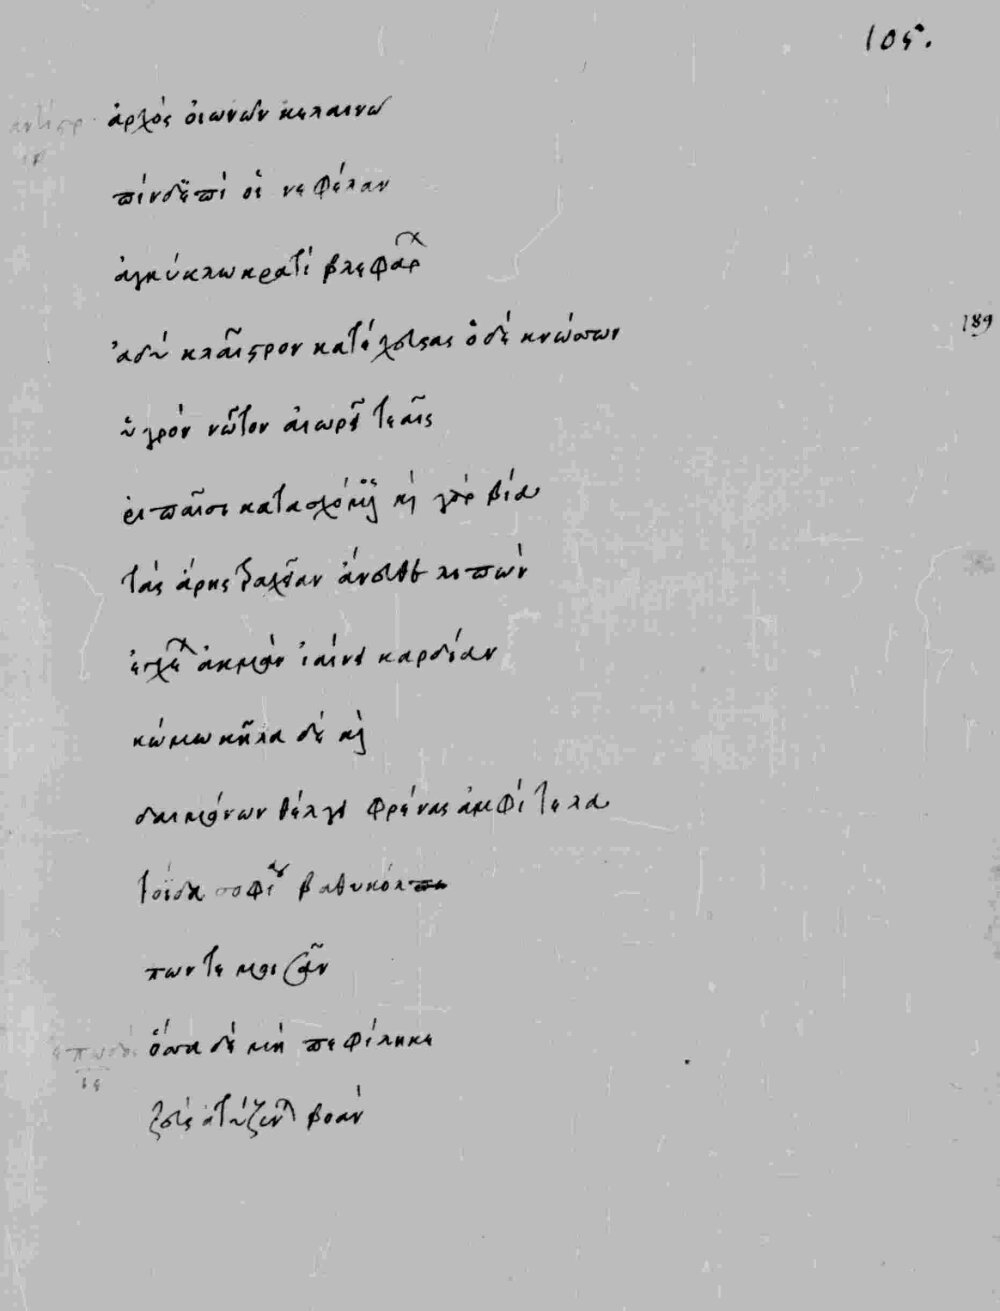 105.
ἀντιστρ. ἀρχὸς οἰωνῶν κελαινῶ
πιν δ᾽ ἐπί οἱ νεφέλαν
ἀγκύλω κρατὶ βλεφάρ
189
ἁδὺ κλᾶιστρον κατέχευας ὁ δὲ κνώσσων
ὑγρὸν νῶτον αἰωρεῖ τεαῖς
ῥιπαῖσι κατασχόμενος καὶ γὰρ βία
τὰς ἄρης τραχεῖαν ἄνευθε λιπὼν
ἐγχέων ἀκμὰν ἰαίνει καρδίαν
κώμω κῆλα δὲ καὶ
δαιμόνων θέλγει φρένας ἀμφί τε λα
τοΐδα σοφίαι βαθυκόλ
πων τε μοισᾶν
ἐπωδὸ. ὅσσα δὲ μὴ πεφίληκε
ιε
ζεὺς ἀτύζονται βοὰν